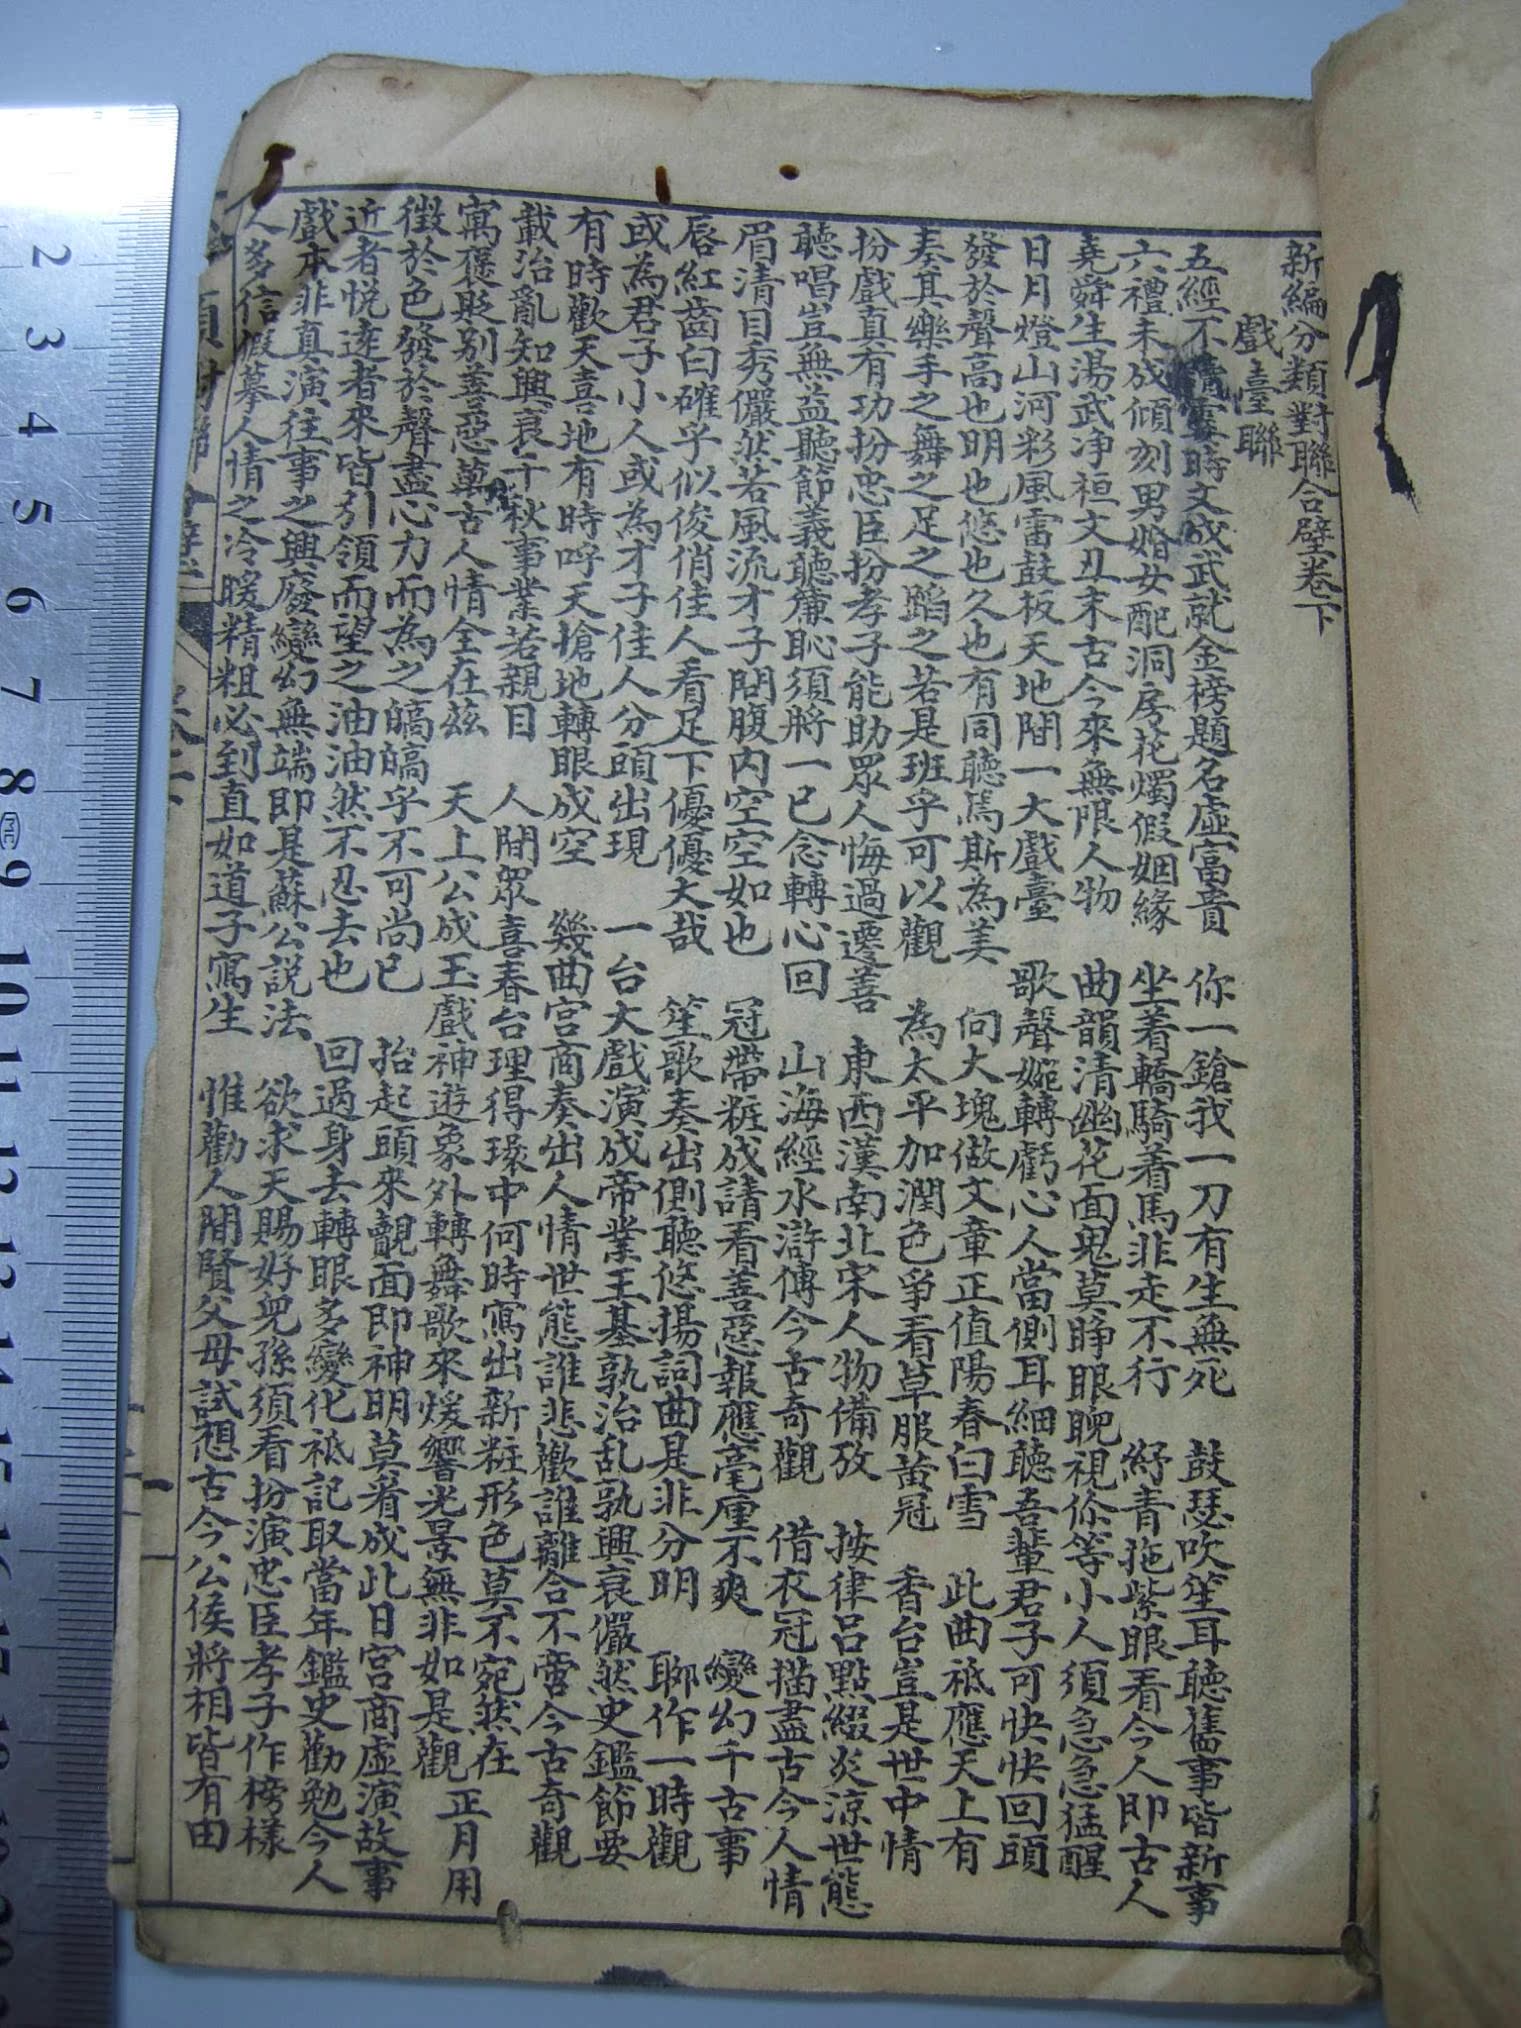 新編分類對聯合璧卷下
戲臺聯
五經不 霎時文成武就金榜題名虛富貴 你一鎗我一刀有生無死 鼓瑟吹笙耳聽舊事皆新事
六禮未成傾刻男婚女配洞房花燭假姻緣 坐着轎騎着馬非走不行 紆青拖紫眼看今人即古人
堯舜生湯武净桓文丑末古今來無限人物 曲韻清幽花面鬼莫睜眼睨視你等小人須急急猛醒
日月燈山河彩風雷鼓板天地間一大戲臺 歌聲婉轉虧心人當側耳細聽吾輩君子可快快回頭
發於聲高也明也悠也久也有同聽焉斯為美 何大塊做文章正值陽春白雪 此曲祗應天上有
奏其樂手之舞之足之蹈之若是班乎可以觀 為太平加潤色爭看草服黃冠 香台豈是世中情
扮戲真有功扮忠臣扮孝子能助眾人悔過遷善 東西漢南北宋人物備攷 按律呂點綴炎涼世態
聽唱豈無益聽節義聽廉恥須將一已念轉心回 山海經水滸傳今古奇觀 借衣冠描盡古今人情
眉清目秀儼然若風流才子問腹内空空如也 冠帶粧成請看善惡報應毫厘不爽 變幻千古事
唇紅齒白確乎似俊俏佳人看足下優優大哉 笙歌奏出側聽悠揚詞曲是非分明 聊作一時觀
或為君子小人或為才子佳人分頭出現 一台大戲演成帝業王基孰治乱孰興衰儼然史鑑節要
有時歡天喜地有時呼天搶地轉眼成空 幾曲宮商奏出人情世態誰悲歡誰離合不啻今古奇觀
載治亂知興衰千秋事業若親目 人間眾喜春台理得環中何時寫出新粧形色莫不宛然在
寓褒貶别善惡萬古人情全在茲 天上公成玉戲神遊象外轉舞歌來煖響光景無非如是觀 正月用
徵於色發於聲盡心力而為之皜皜乎不可尚已 抬起頭來覿面即神明莫看成此日宮商虛演故事
近者悦遠者來皆引領而望之油油然不忍去也 回過身去轉眼多變化祗記取當年鑑史勸勉今人
戲本非真演往事之興廢變幻無端即是蘇公説法 欲求天賜好兒孫須看扮演忠臣孝子作榜樣
人多信假摹人情之冷暖精粗必到直如道子寫生 惟勸人間賢父母試想古今公侯將相皆有由